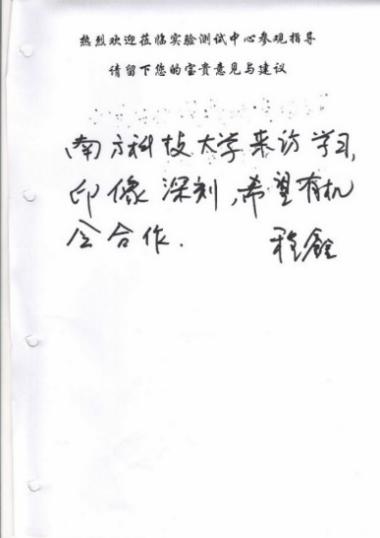 热烈欢迎莅临实验测试中心参观指导
请留下您的宝贵意见与建议
南方科技大学来访学习,
印像深刻,希望有机
会合作.
程鑫